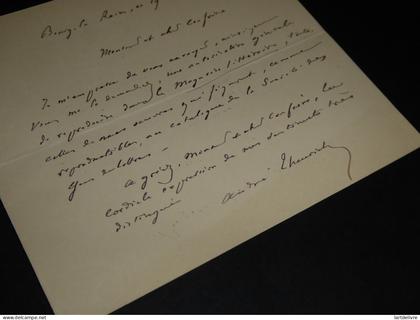 Bourg-la-Reine, 19
Monsieur et cher Confrère
Je m'empresse de vous envoyer, ainsi que
vous me le demandez, une autorisation générale
de reproduire dans le Magasin littéraire, toutes
celles de mes œuvres qui figurent, comme
reproductibles, au catalogue de la Société des
Gens de lettres —
Agréez, Monsieur et cher Confrère, la
cordiale expression de mes sentiments très
distingués
André Theuriet
www.lartdelivre.com